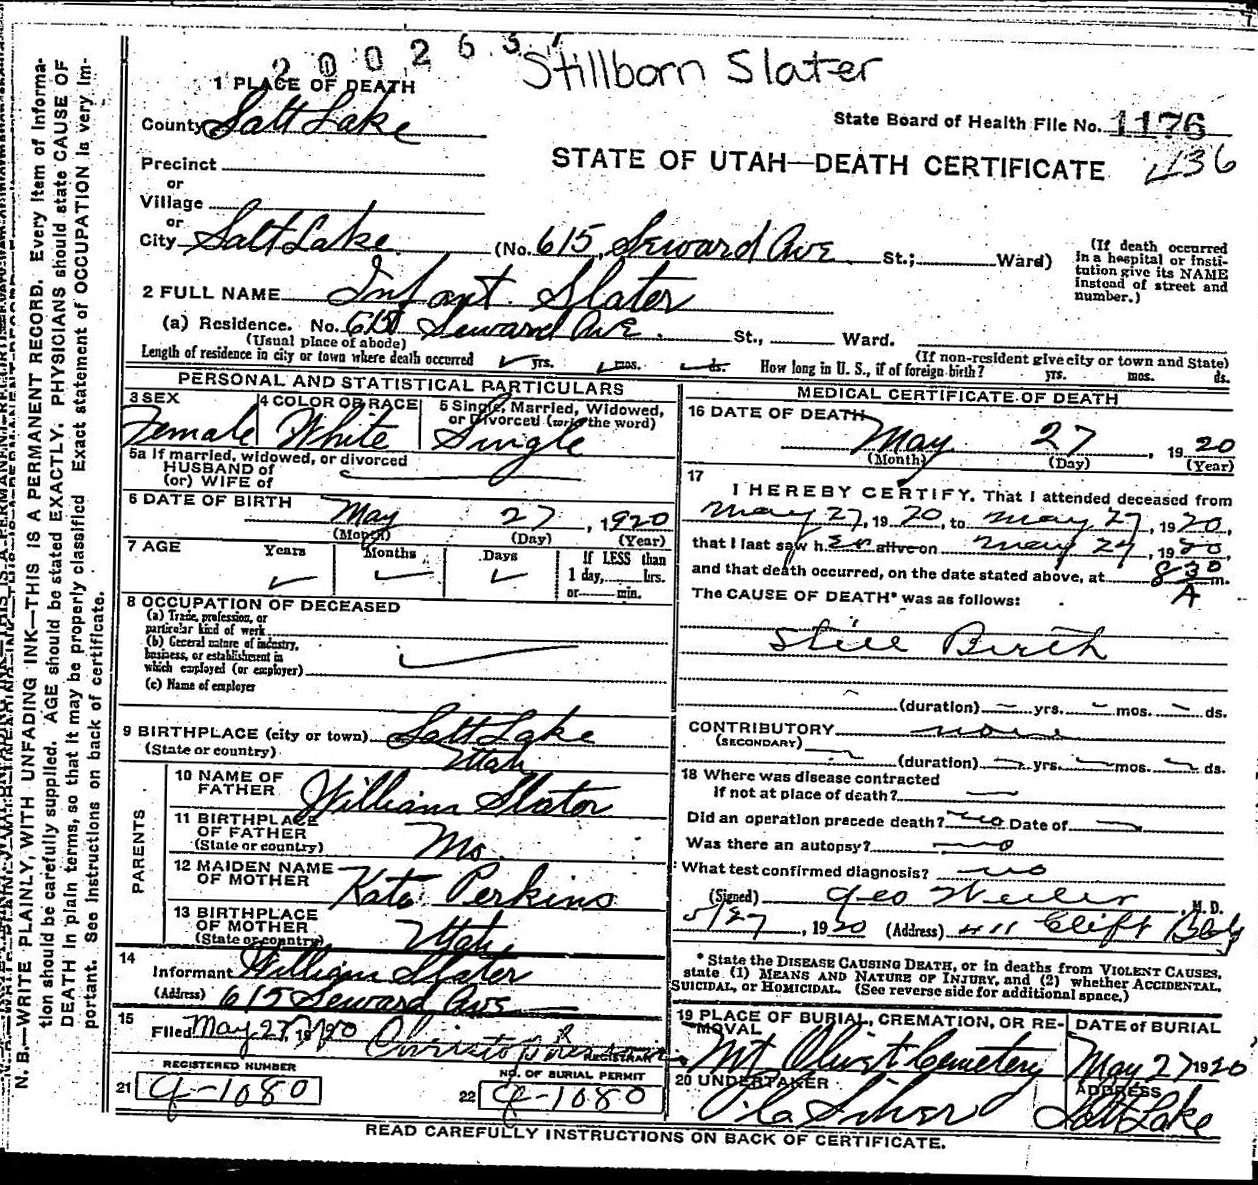 2 0 0 2 6 3
Stillborn Slater
1 PLACE OF DEATH
County Salt Lake
State Board of Health File No. 1176
436
STATE OF UTAH—DEATH CERTIFICATE
Precinct
or
Village
or
City Salt Lake (No. 615 Seward Ave St.; Ward)
(If death occurred in a hospital or institution give its NAME instead of street and number.)
2 FULL NAME Infant Slater
(a) Residence. No. 615 Seward Ave. St., Ward.
(Usual place of abode) (If non-resident give city or town and State)
Length of residence in city or town where death occurred yrs. mos. ds. How long in U. S., if of foreign birth? yrs. mos. ds.
PERSONAL AND STATISTICAL PARTICULARS
3 SEX Female
4 COLOR OR RACE White
5 Single, Married, Widowed, or Divorced (write the word) Single
5a If married, widowed, or divorced
HUSBAND of
(or) WIFE of
6 DATE OF BIRTH May 27, 1920
(Month) (Day) (Year)
7 AGE Years Months Days If LESS than
1 day, hrs.
or min.
8 OCCUPATION OF DECEASED
(a) Trade, profession, or
particular kind of work
(b) General nature of industry,
business, or establishment in
which employed (or employer)
(c) Name of employer
9 BIRTHPLACE (city or town) Salt Lake
(State or country) Utah
PARENTS
10 NAME OF FATHER William Slator
11 BIRTHPLACE OF FATHER (State or country) Mo.
12 MAIDEN NAME OF MOTHER Kate Perkins
13 BIRTHPLACE OF MOTHER (State or country) Utah
14
Informant William Slater
(Address) 615 Seward Ave
15
Filed May 27, 1920 REGISTRAR
REGISTERED NUMBER
21 1080
NO. OF BURIAL PERMIT
22 1080
MEDICAL CERTIFICATE OF DEATH
16 DATE OF DEATH
May 27, 1920
(Month) (Day) (Year)
17
I HEREBY CERTIFY, That I attended deceased from
May 27, 1920, to May 27, 1920,
that I last saw her alive on May 27, 1920,
and that death occurred, on the date stated above, at 830 m.
A
The CAUSE OF DEATH* was as follows:
Still Birth
(duration) yrs. mos. ds.
CONTRIBUTORY none
(SECONDARY)
(duration) yrs. mos. ds.
18 Where was disease contracted
If not at place of death?
Did an operation precede death? no Date of
Was there an autopsy? no
What test confirmed diagnosis? no
(Signed) Geo M. D.
5/27, 1920 (Address) 411 Clift Bldg
* State the DISEASE CAUSING DEATH, or in deaths from VIOLENT CAUSES,
state (1) MEANS AND NATURE OF INJURY, and (2) whether ACCIDENTAL,
SUICIDAL, or HOMICIDAL. (See reverse side for additional space.)
19 PLACE OF BURIAL, CREMATION, OR REMOVAL
Mt Olivet Cemetery
DATE OF BURIAL
May 27 1920
20 UNDERTAKER
ADDRESS
Salt Lake
READ CAREFULLY INSTRUCTIONS ON BACK OF CERTIFICATE.
N. B.—WRITE PLAINLY, WITH UNFADING INK—THIS IS A PERMANENT RECORD. Every item of informa-
tion should be carefully supplied. AGE should be stated EXACTLY. PHYSICIANS should state CAUSE OF
DEATH in plain terms, so that it may be properly classified. Exact statement of OCCUPATION is very im-
portant. See instructions on back of certificate.